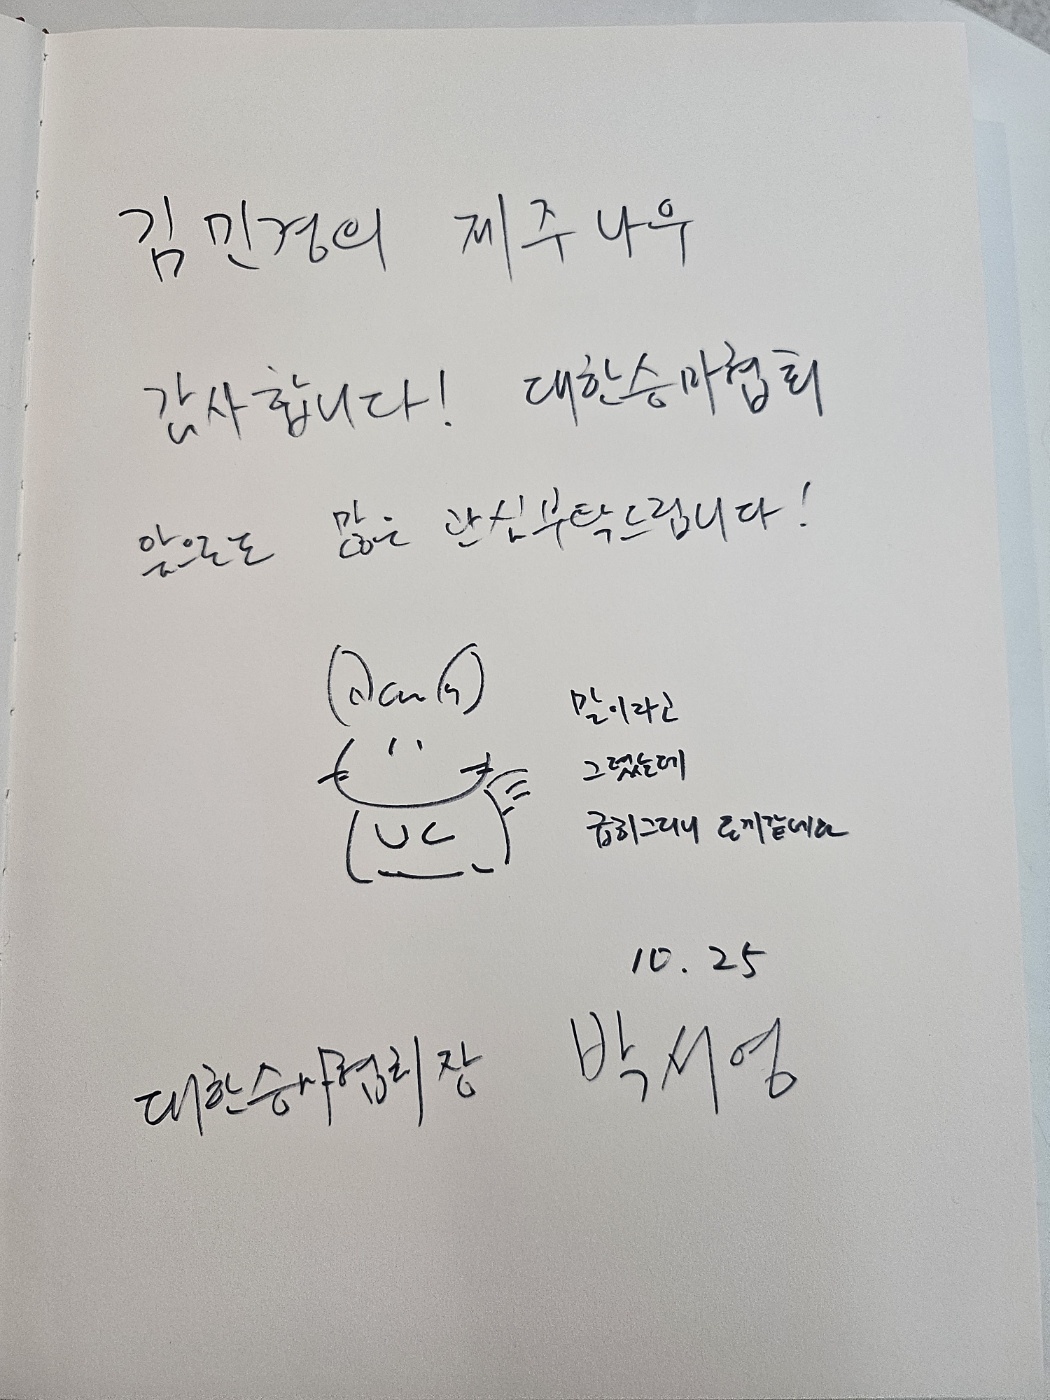 김민경의 제주나우
감사합니다! 대한승마협회
앞으로도 많은 관심부탁드립니다!
말이라고
그렸는데
급히그리니 토끼같네요
10. 25
대한승마협회장 박서영